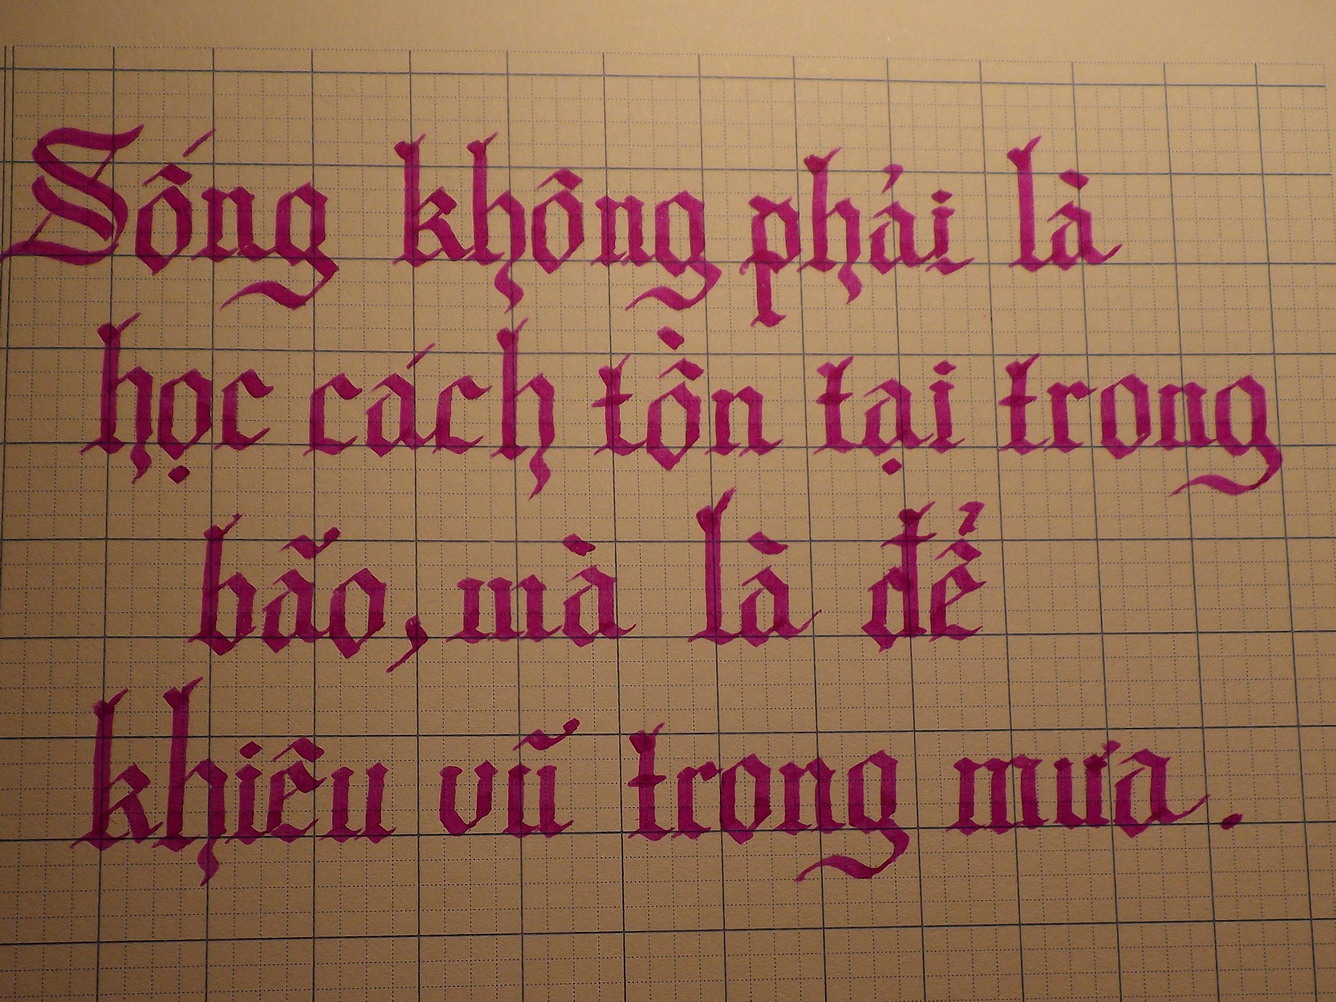 Sống không phải là
học cách tồn tại trong
bão, mà là để
khiêu vũ trong mưa.